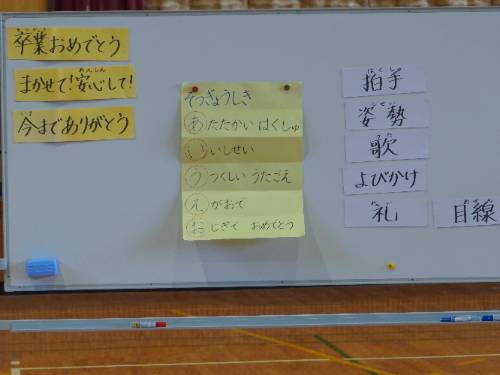 卒業おめでとう
まかせて!安心して!
今までありがとう
そつぎょうしき
あたたかい はくしゅ
いいしせい
うつくしい うたごえ
えがおで
おじぎで おめでとう
拍手
姿勢
歌
よびかけ
礼
目線